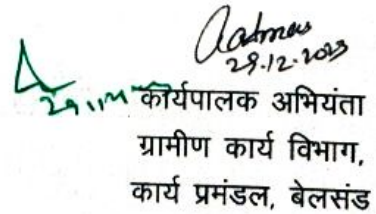 29.12.2023
कार्यपालक अभियंता
ग्रामीण कार्य विभाग,
कार्य प्रमंडल, बेलसंड